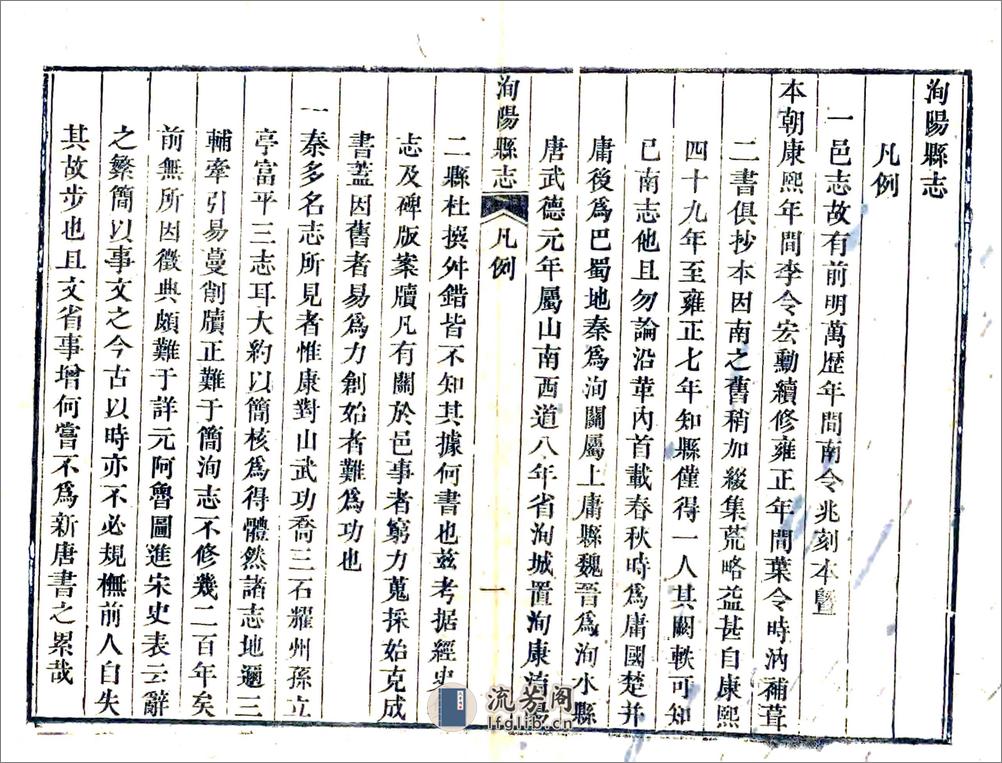 洵陽縣志
凡例
一邑志故有前明萬歷年間南令兆刻本暨
本朝康熙年間李令宏勳續修雍正年間葉令時沩補葺
二書俱抄本因南之舊稍加綴集荒略益甚自康熙
四十九年至雍正七年知縣僅得一人其闕軼可知
已南志他且勿論沿革內首載春秋時為庸國楚并
庸後為巴蜀地秦為洵關屬上庸縣魏晉為洵水縣
唐武德元年屬山南西道八年省洵城置洵康
洵陽縣志
凡例
一
二縣杜撰舛錯皆不知其據何書也茲考据經史
志及碑版案牘凡有關於邑事者窮力蒐採始克成
書蓋因舊者易為力創始者難為功也
一秦多名志所見者惟康對山武功喬三石耀州孫立
亭富平三志耳大約以簡核為得體然諸志地邇三
輔牽引易蔓削牘正難于簡洵志不修幾二百年矣
前無所因徵典頗難于詳元阿魯圖進宋史表云辭
之繁簡以事文之今古以時亦不必規橅前人自失
其故步也且文省事增何嘗不為新唐書之累哉
流芳阁
lfglib.cn